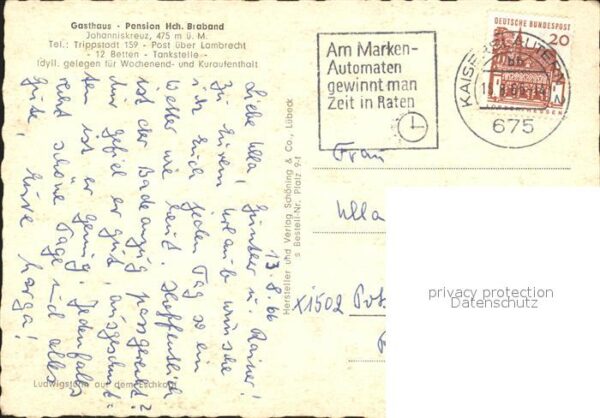 Gasthaus - Pension Hch. Braband
Johanniskreuz, 475 m ü. M.
Tel.: Trippstadt 159 - Post über Lambrecht
- 12 Betten - Tankstelle -
Idyll. gelegen für Wochenend- und Kuraufenthalt
13.8.66
Liebe Ulla, Günther u. Rainer!
Zu Eurem Urlaub wünsche
ich Euch jeden Tag so ein
Wetter wie heut. Hoffentlich
ist der Badeanzug passgerecht?
Mir gefiel er gut, ausgeschnit-
ten ist er genug. Jedenfalls
recht schöne Tage und alles
Gute,
Eure Marga!
Ludwigsturm auf dem Eschkopf
Hersteller und Verlag Schöning & Co., Lübeck
s Bestell-Nr. Pfalz 9-f
Am Marken-
Automaten
gewinnt man
Zeit in Raten
DEUTSCHE BUNDESPOST
20
KAISERSLAUTERN
675
Frau
Ulla
X1502 Pot
privacy protection
Datenschutz